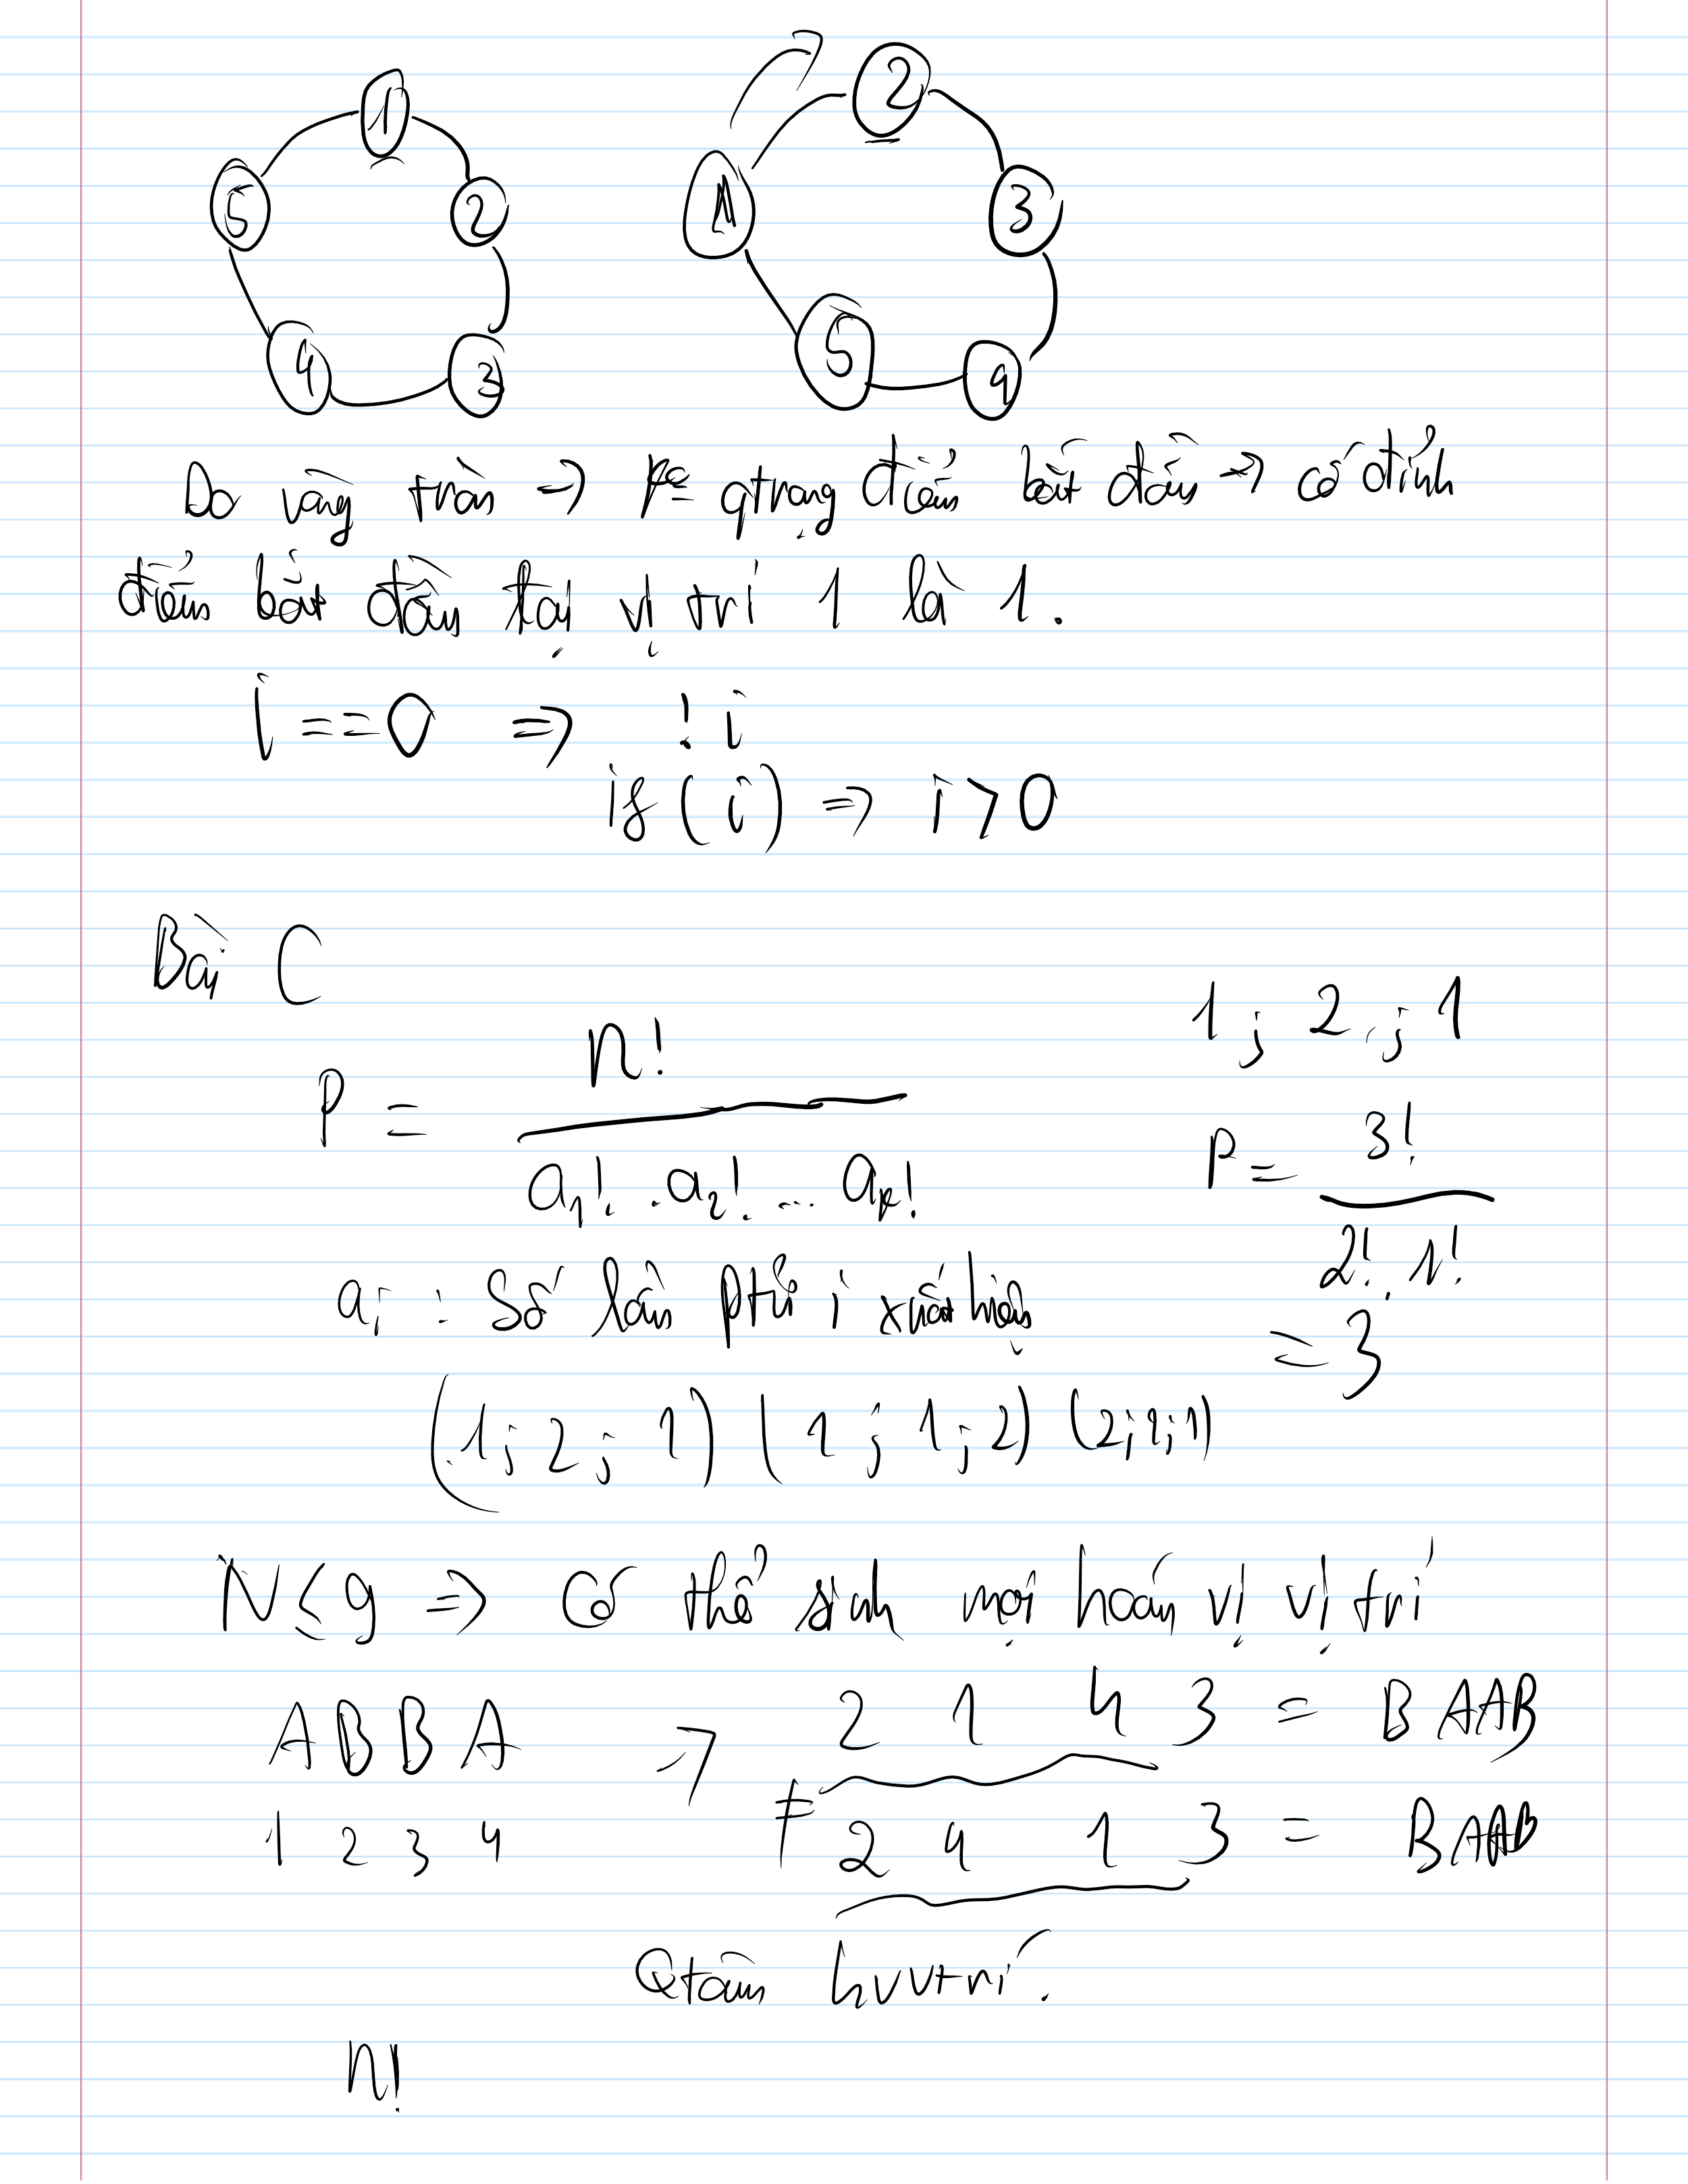 1 2
5 2 1 3
4 3 5 4
Do vòng tròn → k qtrọng điểm bắt đầu → cố định
điểm bắt đầu tại vị trí 1 là 1.
i == 0 ⇒ !i
if (i) ⇒ i > 0
Bài C
1 ; 2 ; 1
P = n! / a₁! . a₂! ... aₖ!
P = 3! / 2! . 1!
aᵢ : Số lần ptử i xuất hiện
= 3
(1; 2; 1) (1; 1; 2) (2; 1; 1)
N ≤ 9 ⇒ Có thể sinh mọi hoán vị vị trí
A B B A → 2 1 4 3 = B A A B
1 2 3 4 ≠ 2 4 1 3 = B A A B
Qtâm hvvtrí.
n!